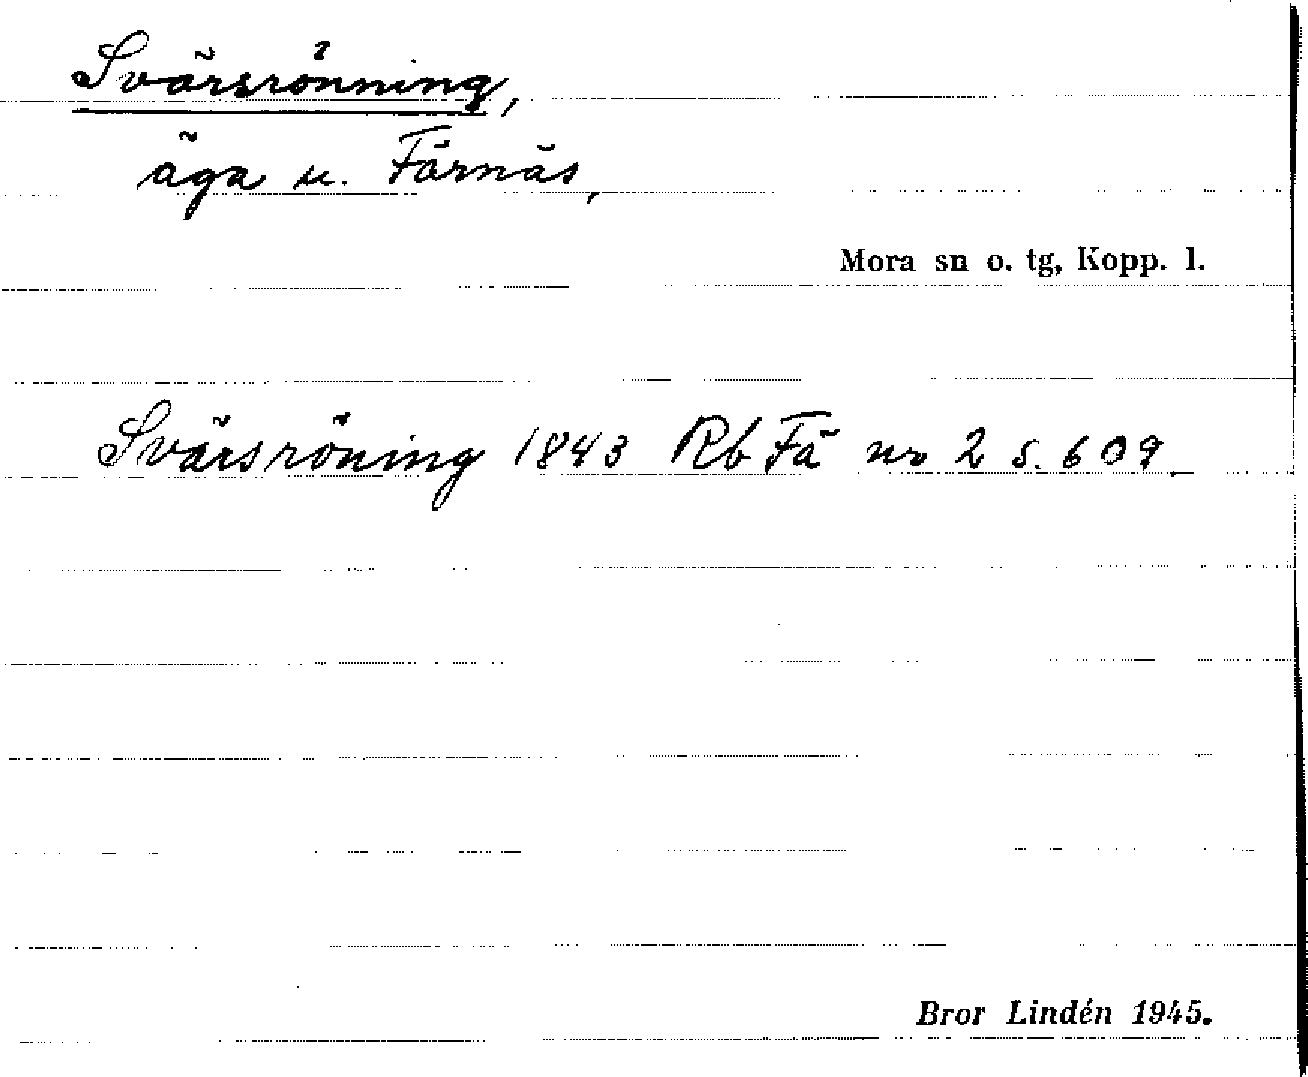 Svärsrönning,
äga u. Färnäs,
Mora sn o. tg, Kopp. l.
Svärsröning 1843 Rb Fä nr 2 s. 609.
Bror Lindén 1945.